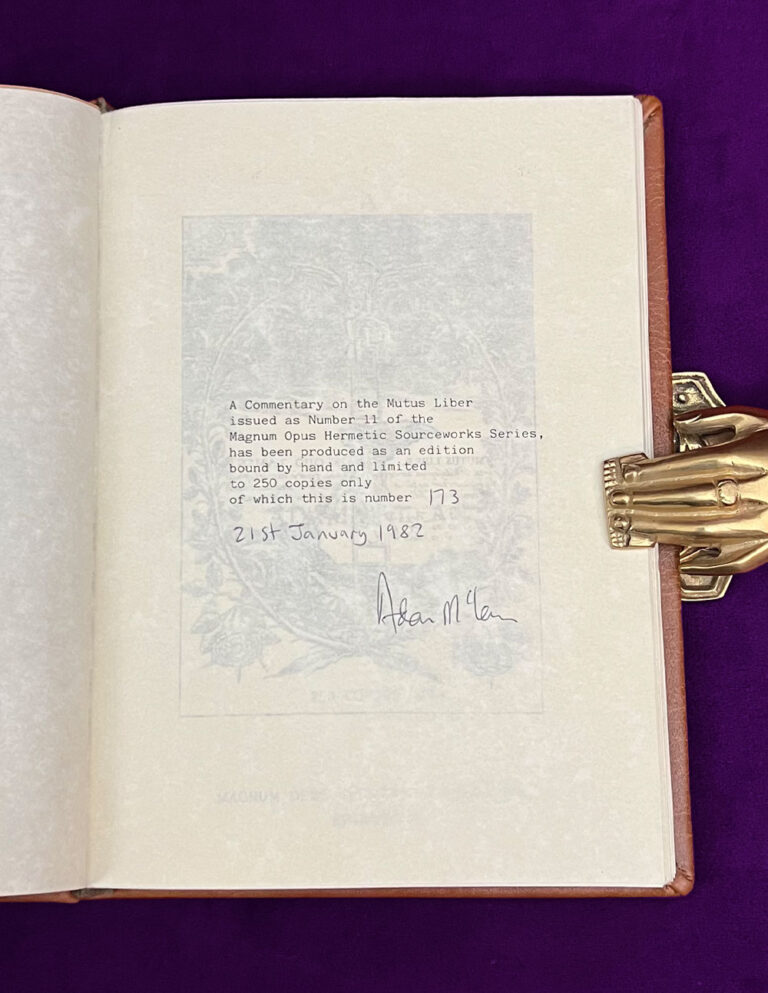 A Commentary on the Mutus Liber
issued as Number 11 of the
Magnum Opus Hermetic Sourceworks Series,
has been produced as an edition
bound by hand and limited
to 250 copies only
of which this is number 173
21st January 1982
Adam McLean